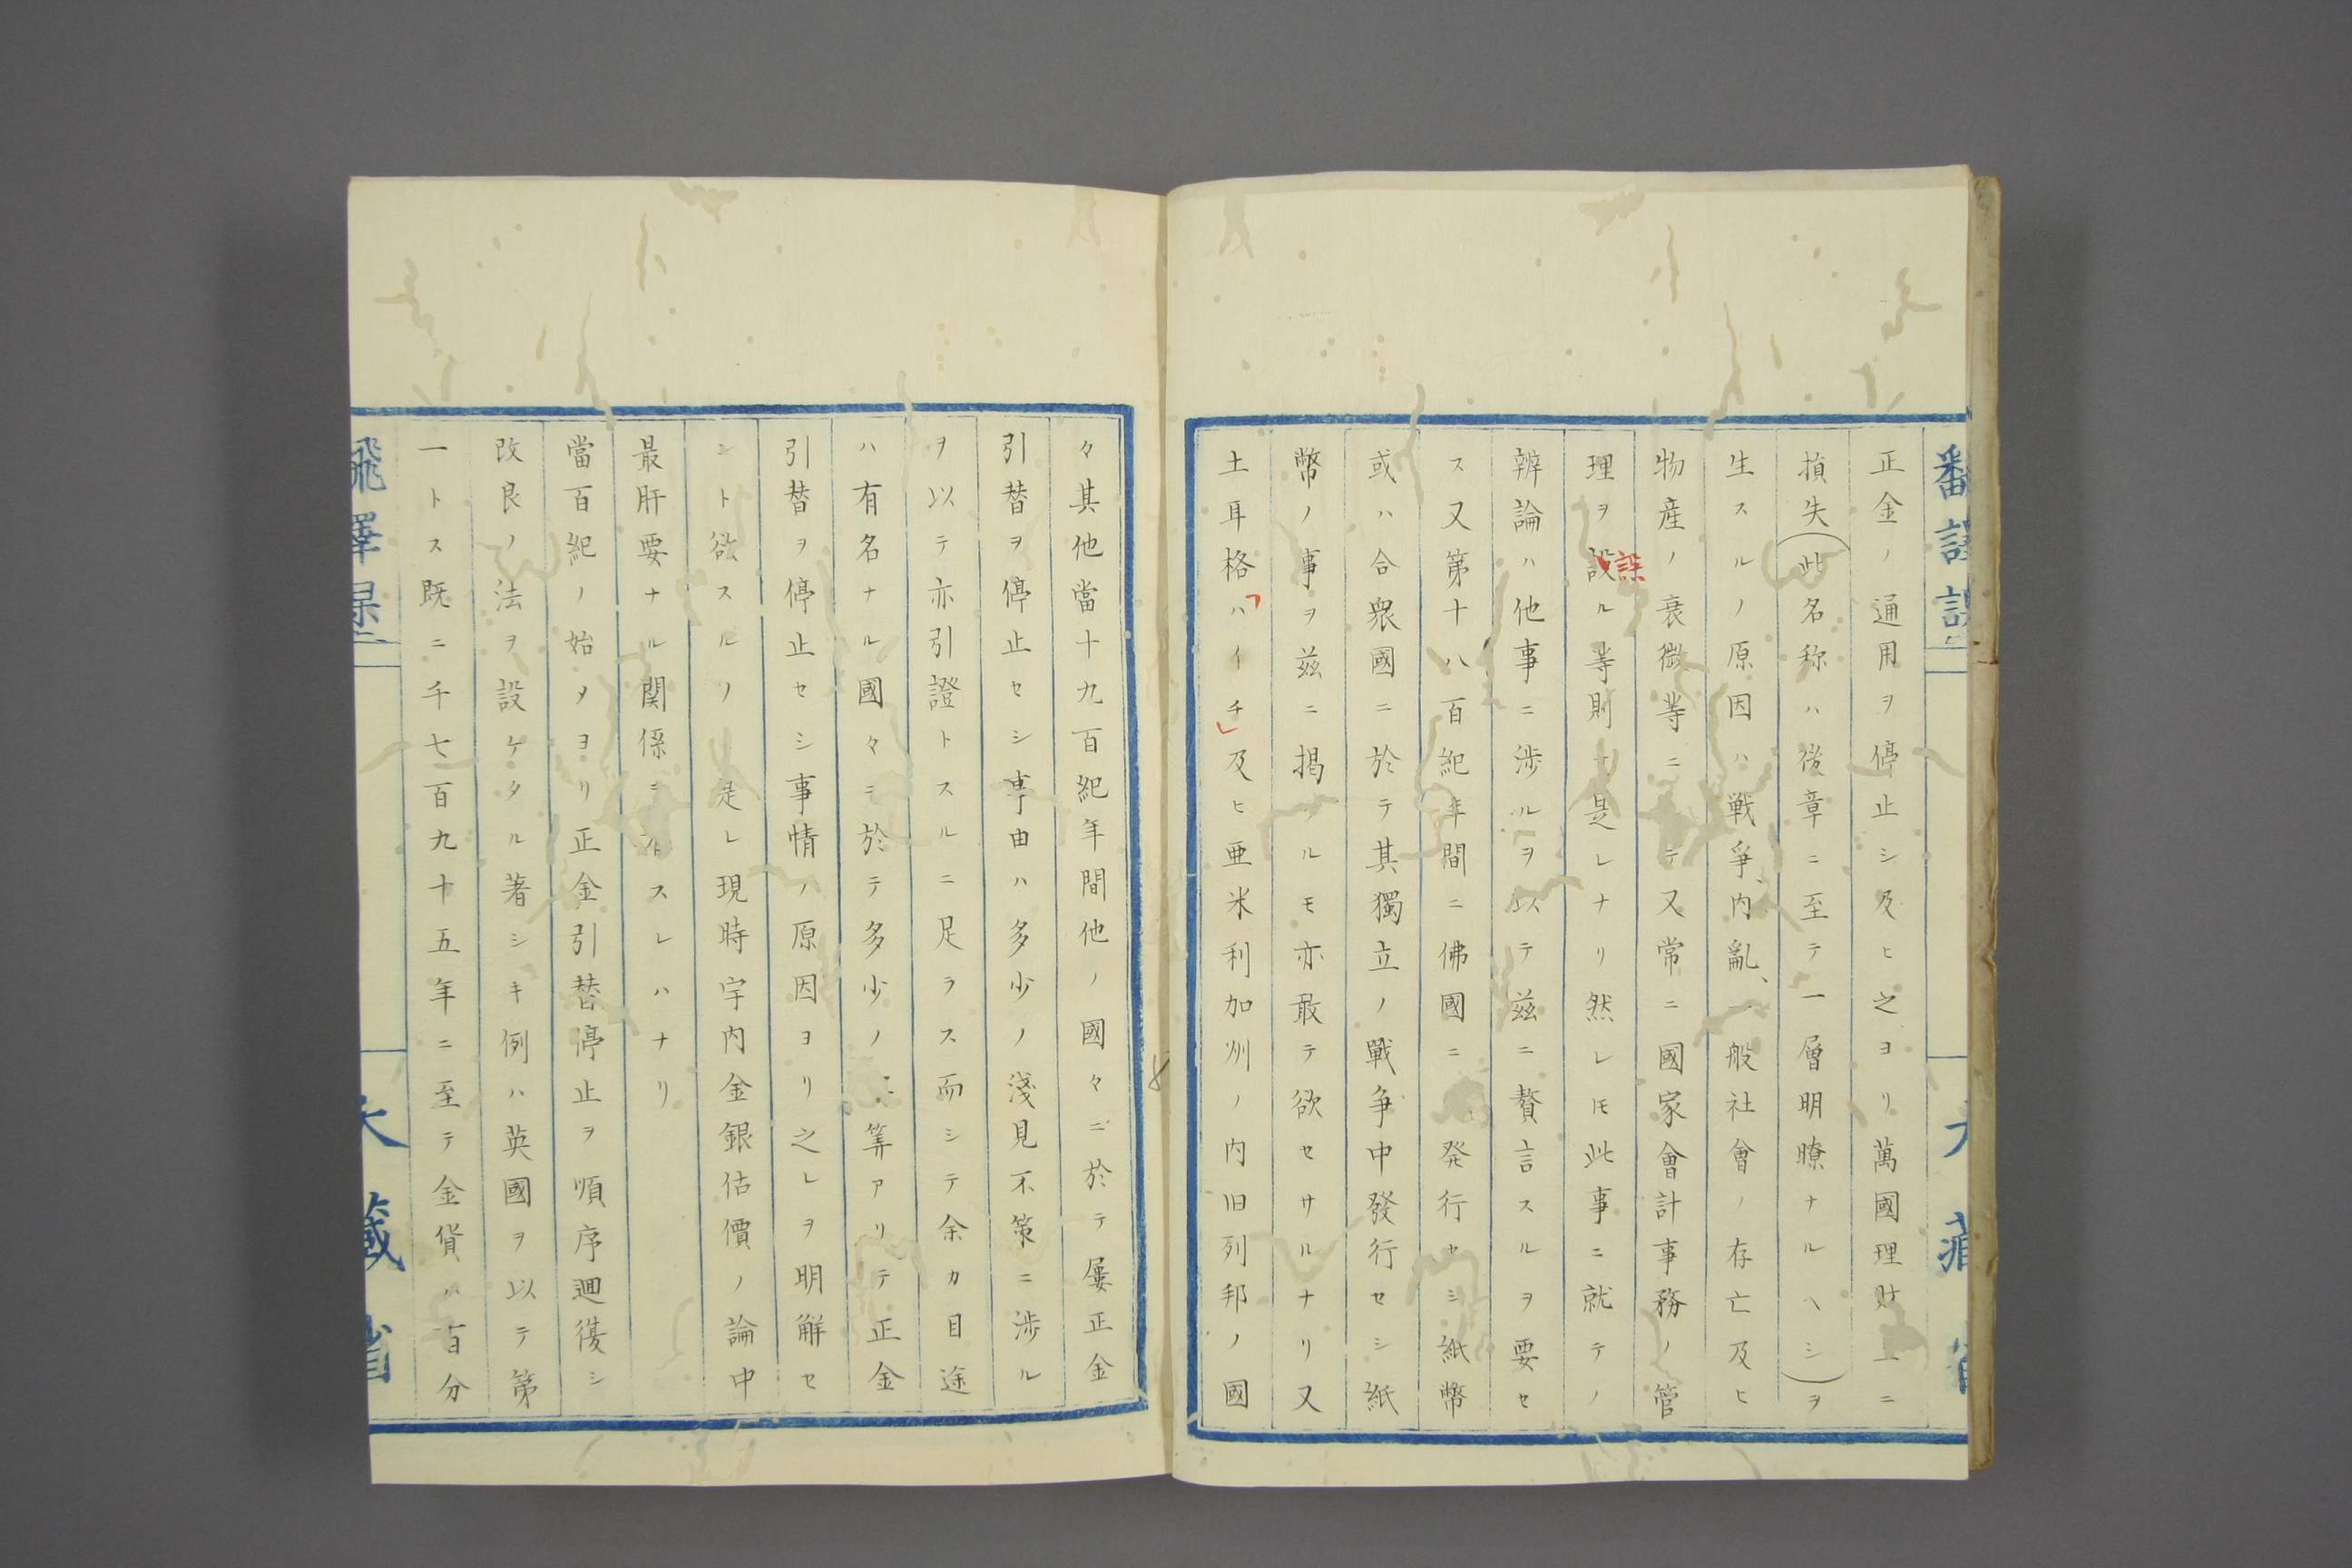 翻譯課
大藏省
正金ノ通用ヲ停止シ及ヒ之ヨリ萬國理財上ニ
損失(此名称ハ後章ニ至テ一層明瞭ナルヘシ)ヲ
生スルノ原因ハ戦爭、内亂、一般社會ノ存亡及ヒ
物産ノ衰微等ニ テ又常ニ國家會計事務ノ管
理ヲ設ル等則 是レナリ然レ𪜈此事ニ就テノ
誤
辨論ハ他事ニ渉ルヲ以テ茲ニ贅言スルヲ要セ
ス又第十八百紀年間ニ佛國ニ 発行セシ紙幣
或ハ合衆國ニ於テ其獨立ノ戰争中發行セシ紙
幣ノ事ヲ茲ニ掲 ルモ亦敢テ欲セサルナリ又
土耳格「ハイチ」及ヒ亜米利加洲ノ内旧列邦ノ國
々其他當十九百紀年間他ノ國々ニ於テ屢正金
引替ヲ停止セシ事由ハ多少ノ淺見不策ニ渉ル
ヲ以テ亦引證トスルニ足ラス而シテ余カ目途
ハ有名ナル國々ニ於テ多少ノ 算アリテ正金
引替ヲ停止セシ事情ノ原因ヨリ之レヲ明解セ
ント欲スルノ 是レ現時宇内金銀估價ノ論中
最肝要ナル関係ニ スレハナリ
當百紀ノ始メヨリ正金引替停止ヲ順序廻復シ
改良ノ法ヲ設ケタル著シキ例ハ英國ヲ以テ第
一トス既ニ千七百九十五年ニ至テ金貨ハ百分
大藏省